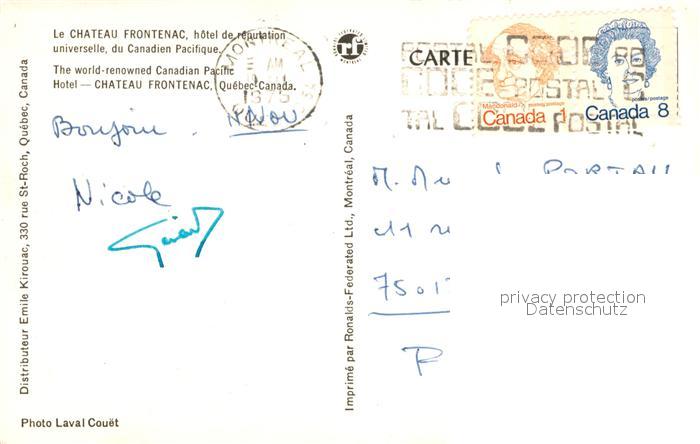 Le CHATEAU FRONTENAC, hôtel de réputation
universelle, du Canadien Pacifique.
The world-renowned Canadian Pacific
Hotel — CHATEAU FRONTENAC, Québec-Canada.
MONTREAL
AM
1975
Bonjour.
Nicole
Distributeur Emile Kirouac, 330 rue St-Roch, Québec, Canada
Photo Laval Couët
Imprimé par Ronalds-Federated Ltd., Montréal, Canada
CARTE
POSTAL CODE
CODE POSTAL
TAL CODE POSTAL
Macdonald postes/postage
Canada 1
postes/postage
Canada 8
M.
privacy protection
Datenschutz